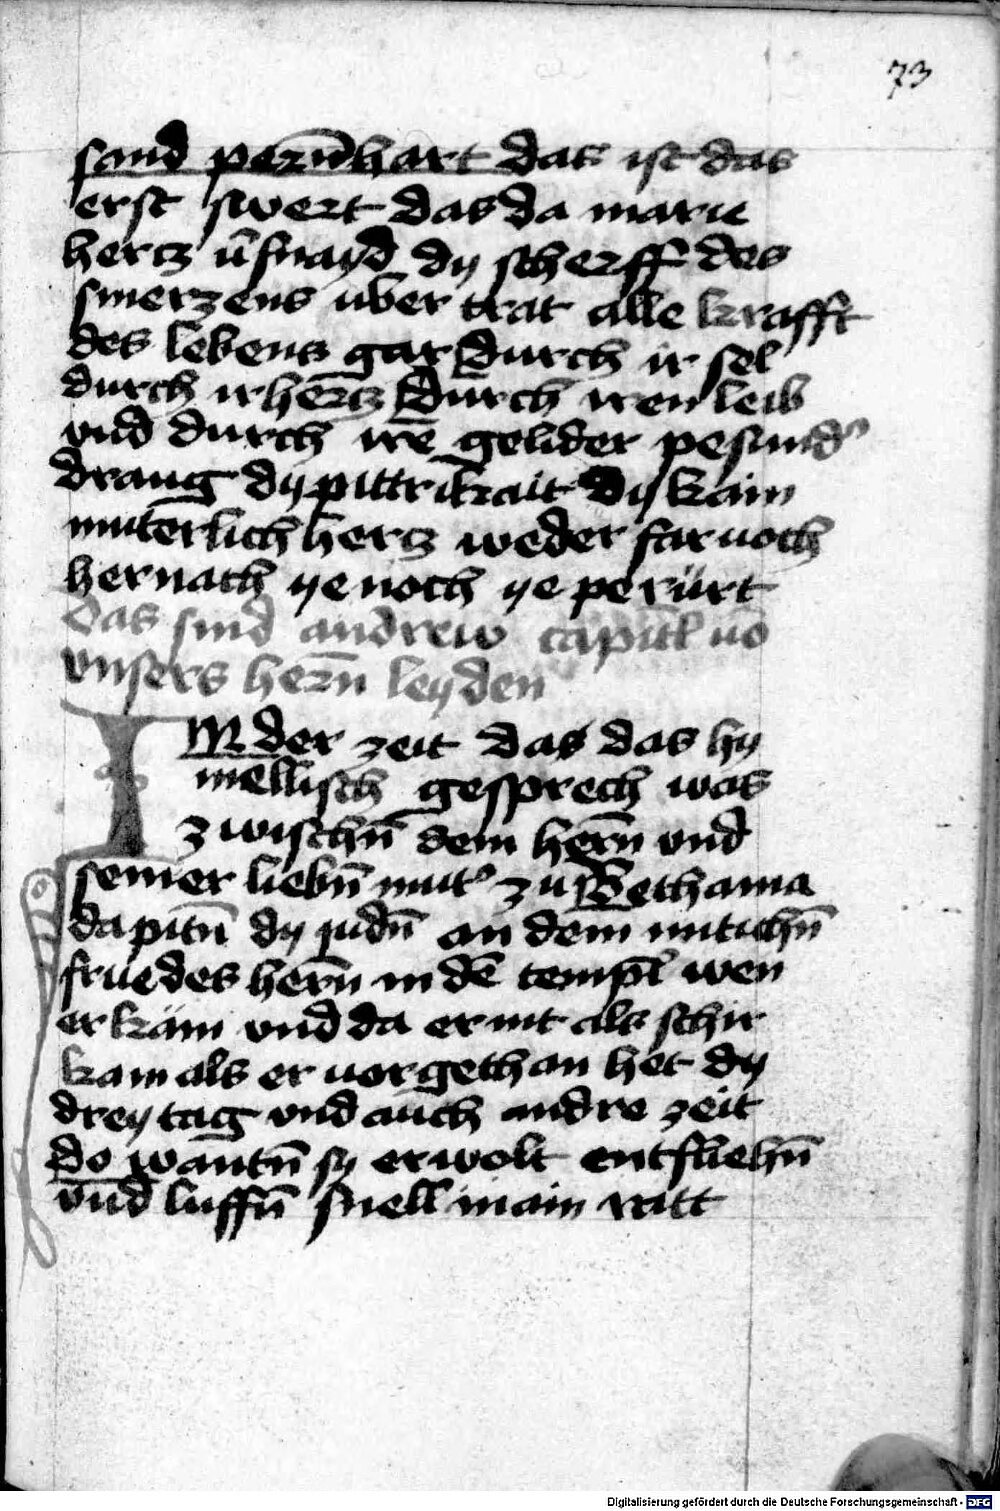 73
sand pernhart das ist das
erst swert das da marie
hertz v̄snayd dy scherff des
smerzens uber trat alle krafft
des lebens gar durch ir sel
durch ir hertz durch iren leib
und durch ire gelider pesund̄
drang dy pittrikait dy kain
muterlich hertz weder far noch
hernach ye noch ye perürt
Das sind andrew capitl uō
unsers hern̄ leyden
IN der zeit das das hy
mellisch gesprech was
zwischn̄ dem hern̄ und
seiner liebn̄ mut̄ zu Bethania
da pitn̄ dy judn̄ an dem mitichn̄
frue des hern̄ in dē templ wen
er käm und da er nit als schir
kam als er vor gethan het dy
drey tag und auch andre zeit
do wantn̄ sy er wolt entfliehn̄
und luffn̄ snell in ain ratt
Digitalisierung gefördert durch die Deutsche Forschungsgemeinschaft - DFG